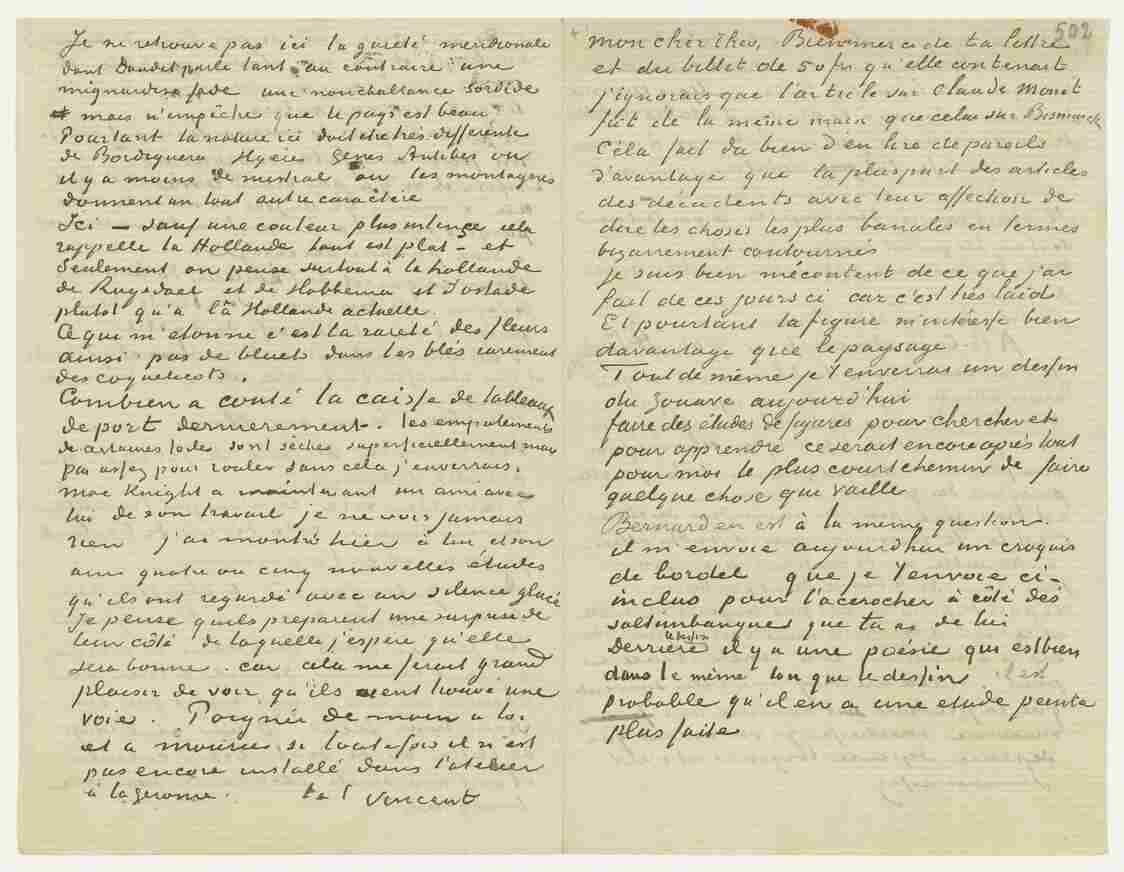 Je ne retrouve pas ici la gaieté meridionale
dont Daudet parle tant au contraire une
mignardise fade une nonchallance sordide
mais n'empêche que le pays est beau
Pourtant la nature ici doit etre très differente
de Bordighera Hyeres Gênes Antibes ou
il y a moins de mistral ou les montagnes
donnent un tout autre caractère
Ici – sauf une couleur plus intense cela
rappelle la Hollande tout est plat – et
seulement on pense surtout à la hollande
de Ruysdael et de Hobbema et d'ostade
plutot qu'à la Hollande actuelle.
Ce qui m'etonne c'est la rareté des fleurs
ainsi pas de bluets dans les blés rarement
des coquelicots.
Combien a couté la caisse de tableaux
de port dernierement. les empatements
de certaines toiles sont sechés superficiellement mais
pas assez pour rouler sans cela j'enverrais.
Mac Knight a maintenant un ami avec
lui de son travail je ne vois jamais
rien j'ai montré hier à lui et son
ami quatre ou cinq nouvelles études
qu'ils ont regardé avec un silence glacé
Je pense qu'ils preparent une surprise de
leur côté de laquelle j'espère qu'elle
sera bonne. car cela me ferait grand
plaisir de voir qu'ils aient trouvé une
voie. Poignée de main a toi
et a mourier si toutefois il n'est
pas encore installé dans l'atelier
à la gerome. t. à t. Vincent
502
mon cher theo, Bien merci de ta lettre
et du billet de 50 fr qu'elle contenait
j'ignorais que l'article sur Claude Monet
fut de la même main que celui sur Bismarck
Cela fait du bien d'en lire de pareils
d'avantage que la pluspart des articles
des decadents avec leur affection de
dire les choses les plus banales en termes
bizarrement contournés
Je suis bien mécontent de ce que j'ai
fait de ces jours ci car c'est très laid
Et pourtant la figure m'intéresse bien
davantage que le paysage.
Tout de même je t'enverrai un dessin
du zouave aujourd'hui
faire des études de figures pour chercher et
pour apprendre ce serait encore après tout
pour moi le plus court chemin de faire
quelque chose qui vaille
Bernard en est à la meme question.
il m'envoie aujourd'hui un croquis
de bordel que je t'envoie ci-
inclus pour l'accrocher à côté des
saltimbanques que tu as de lui
Derrière le dessin il y a une poésie qui est bien
dans le même ton que le dessin
probable qu'il en a une etude peinte
plus faite